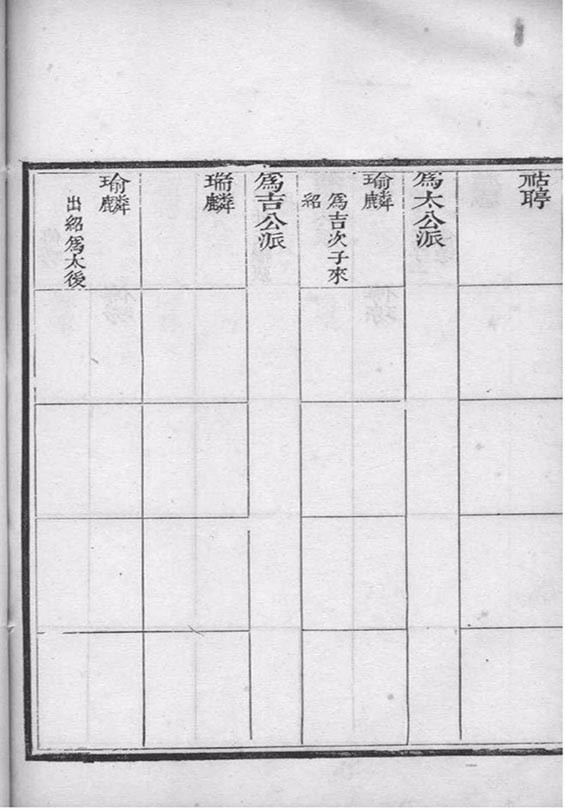 祜聘
爲太公派
瑜麟
爲吉次子來
紹
爲吉公派
瑞麟
瑜麟
出紹爲太後